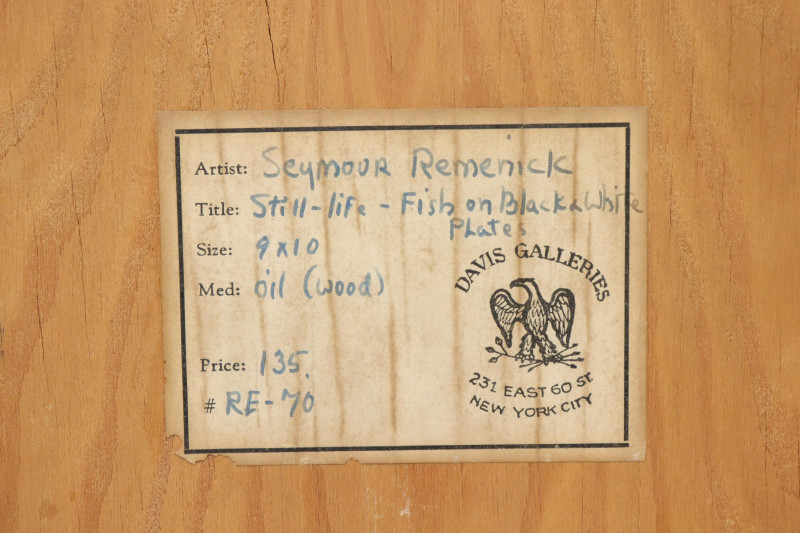 Artist: Seymour Remenick
Title: Still-life - Fish on Black & White
Plates
Size: 9 x 10
Med: oil (wood)
DAVIS GALLERIES
231 EAST 60 ST.
NEW YORK CITY
Price: 135.
# RE-70